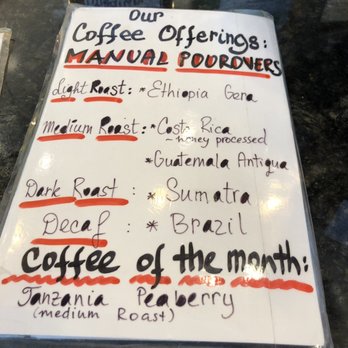 Our
Coffee Offerings:
MANUAL POUROVERS
Light Roast: *Ethiopia Gera
Medium Roast: *Costa Rica
~honey processed
*Guatemala Antigua
Dark Roast : *Sumatra
Decaf : * Brazil
Coffee of the month:
Tanzania Peaberry
(medium Roast)